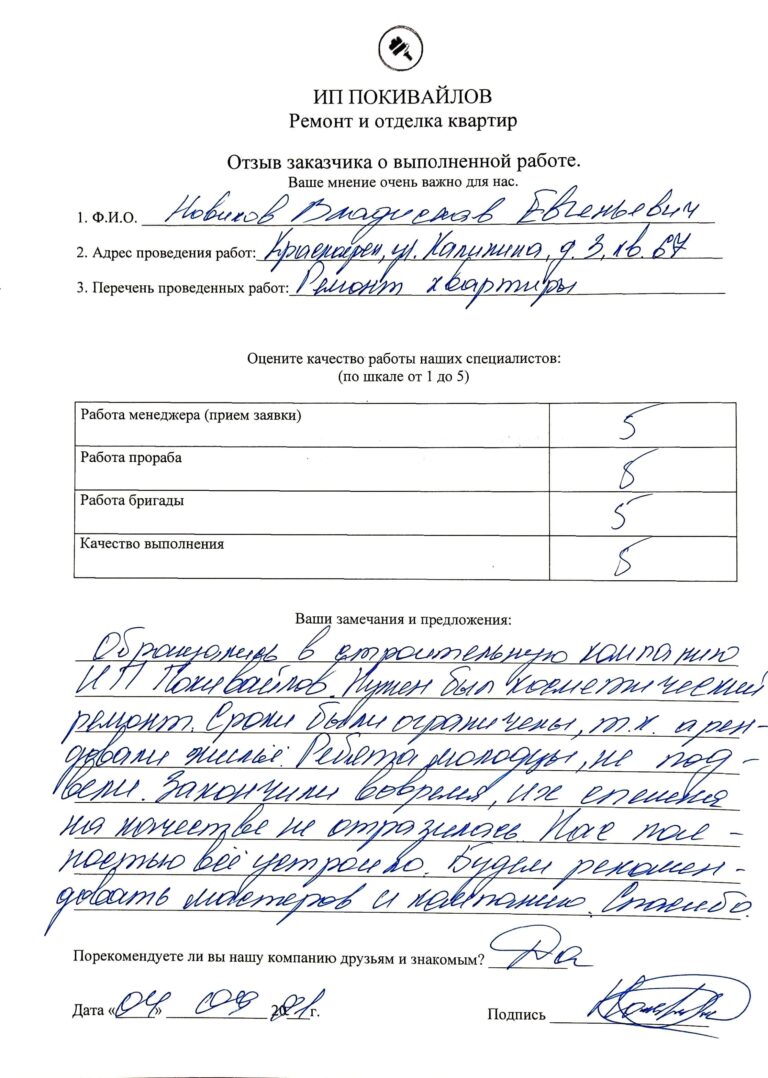 ИП ПОКИВАЙЛОВ
Ремонт и отделка квартир
Отзыв заказчика о выполненной работе.
Ваше мнение очень важно для нас.
1. Ф.И.О. Новиков Владислав Евгеньевич
2. Адрес проведения работ: ул. Калинина, д. 3, кв. 67
3. Перечень проведенных работ: Ремонт квартиры
Оцените качество работы наших специалистов:
(по шкале от 1 до 5)
Работа менеджера (прием заявки) 5
Работа прораба 5
Работа бригады 5
Качество выполнения 5
Ваши замечания и предложения:
Обращались в строительную компанию
ИП Покивайлов. Нужен был косметический
ремонт. Сроки были ограничены, т.к. арен-
довали жильё. Ребята молодцы, не под-
вели. Закончили вовремя, их спешка
на качестве не отразилась. Нас пол-
ностью всё устроило. Будем рекомен-
довать мастеров и компанию. Спасибо.
Порекомендуете ли вы нашу компанию друзьям и знакомым? Да
Дата «04» 09 2021 г. Подпись